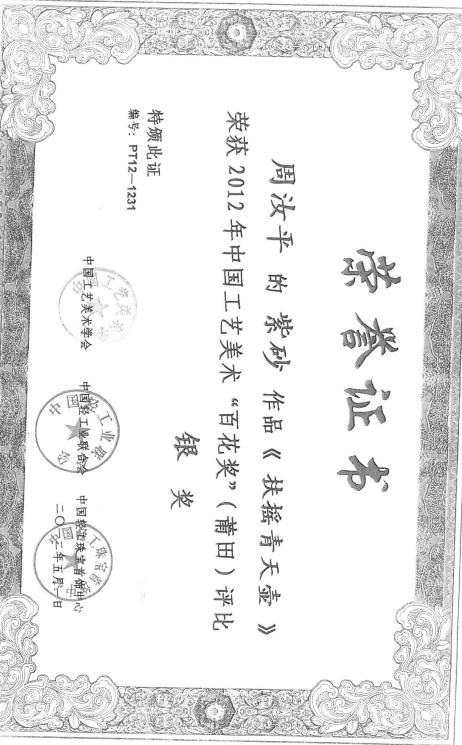 荣誉证书
周汝平 的 紫砂 作品《扶摇青天壶》
荣获 2012 年中国工艺美术“百花奖”(莆田)评比
银 奖
特颁此证
编号: PT12—1231
中国工艺美术学会
中国轻工业联合会
中国轻工珠宝首饰中心
二〇一二年五月一日